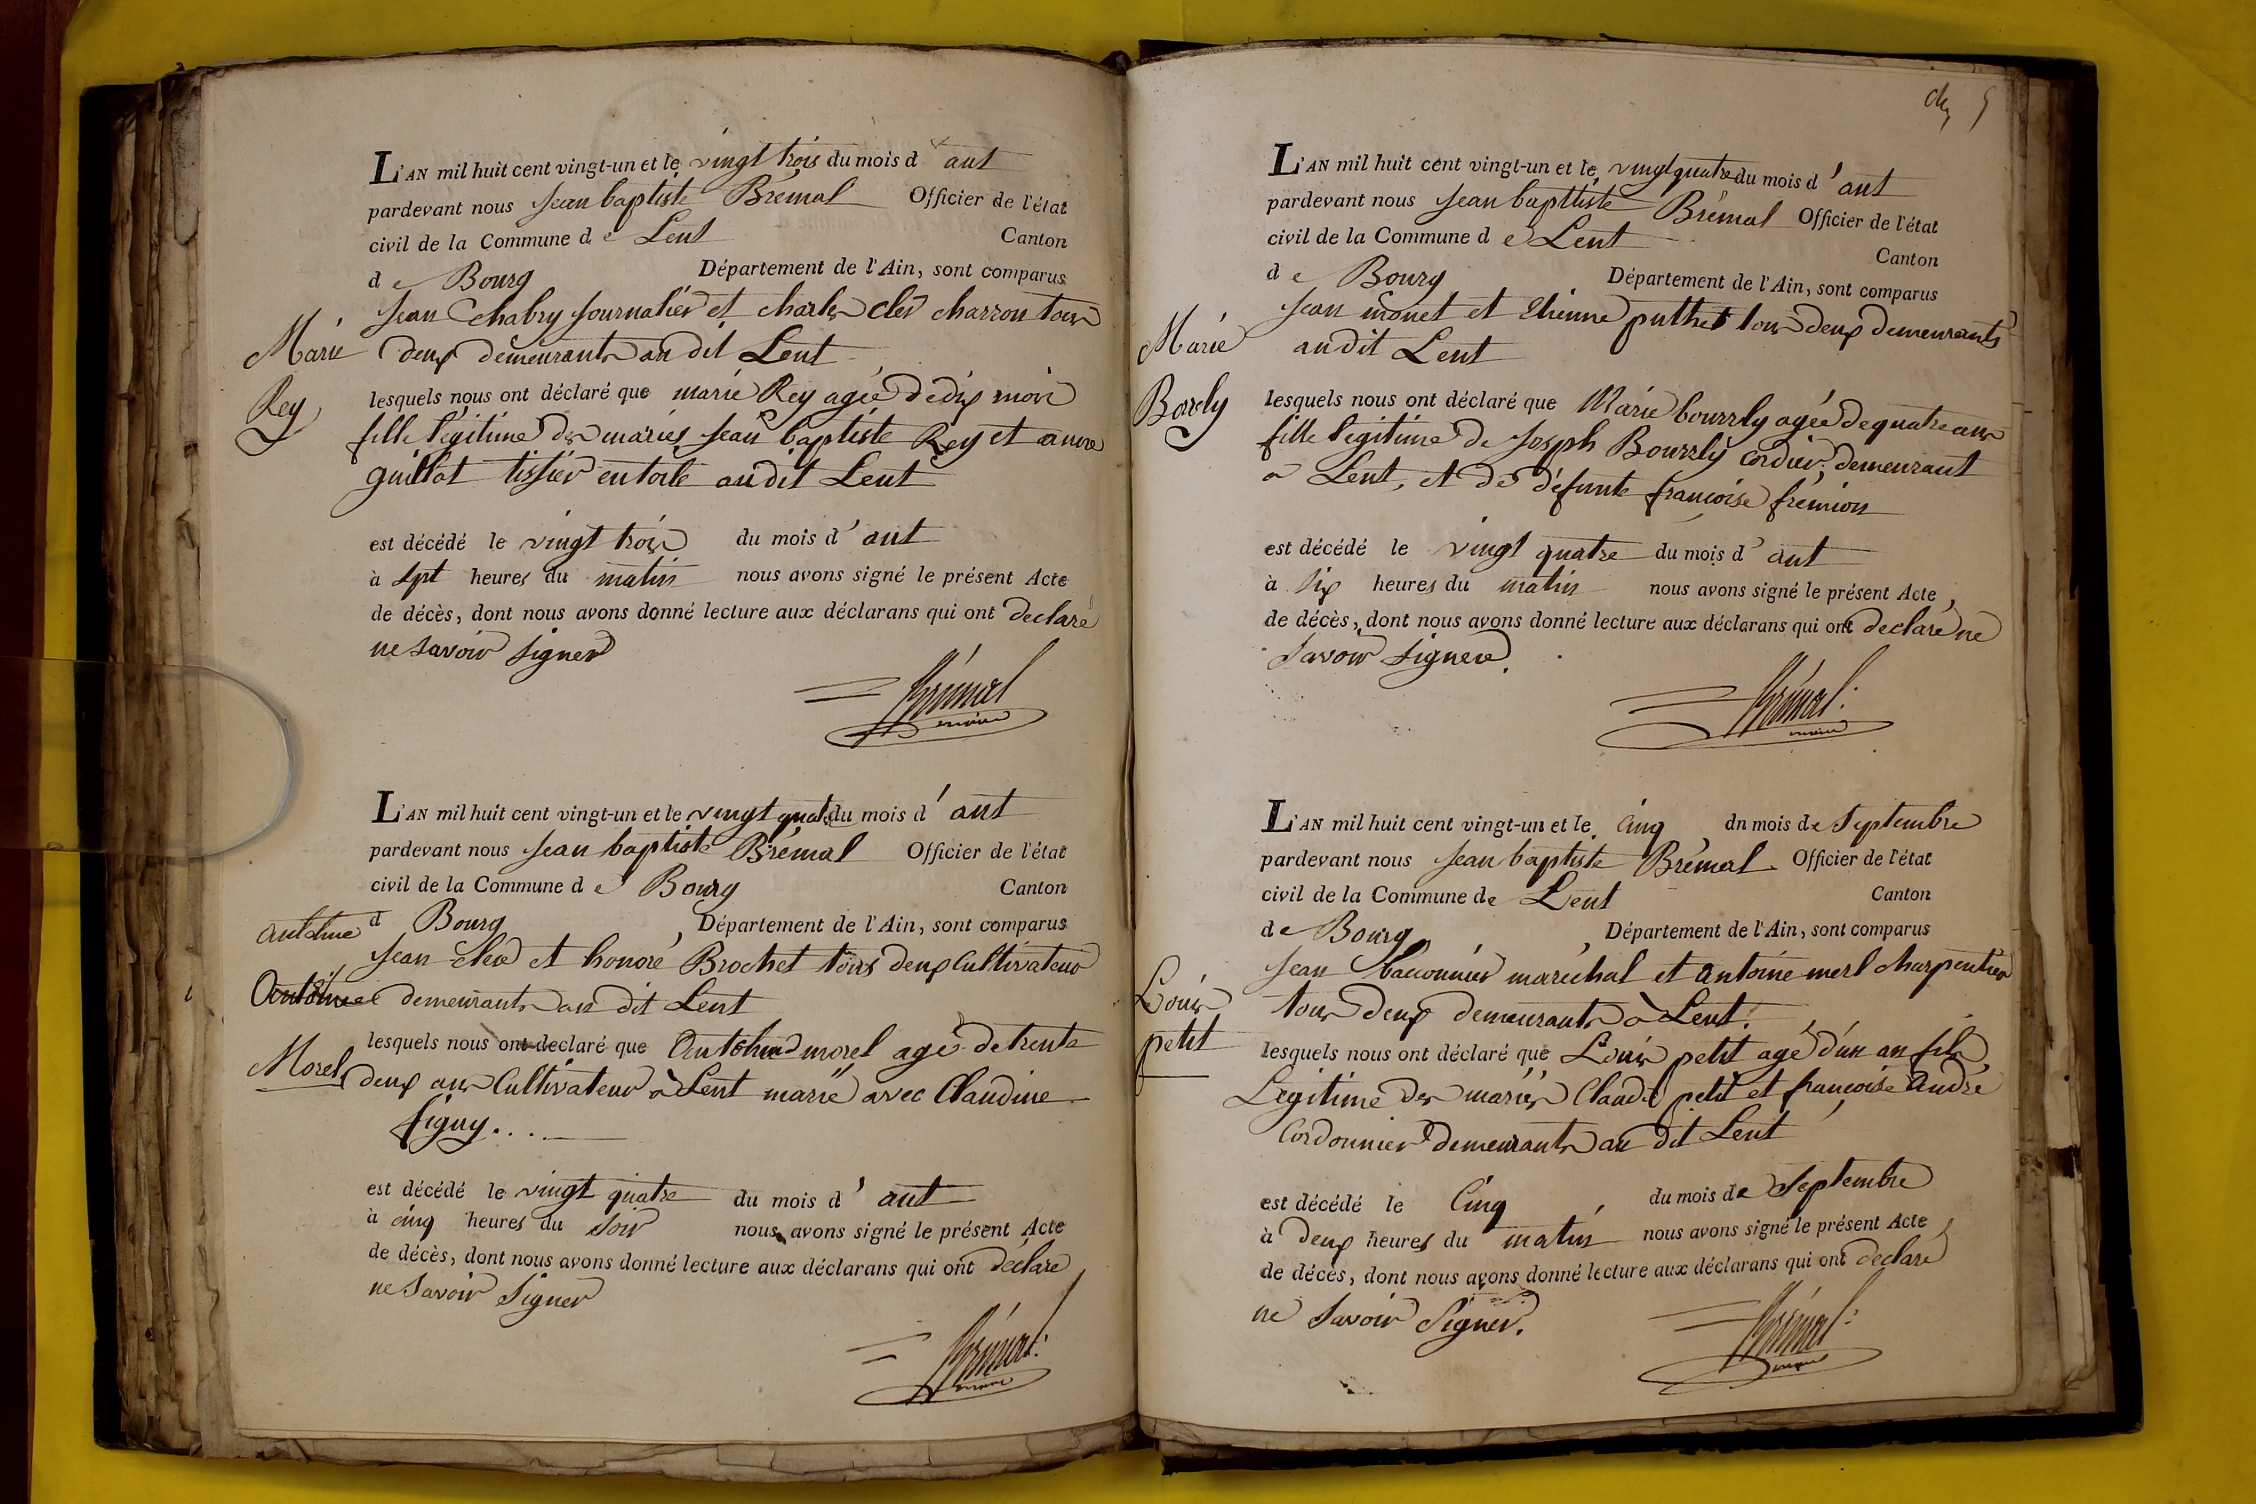 L'AN mil huit cent vingt-un et le vingt trois du mois d'aut
pardevant nous Jean baptiste Brémal Officier de l'état
civil de la Commune de Lent Canton
de Bourg Département de l'Ain, sont comparus
Jean Chabry journalier et charles cler charron tous
Marie
deux demeurants au dit Lent
Rey
lesquels nous ont déclaré que marie Rey agée de dix mois
fille légitime des mariés Jean baptiste Rey et anne
guillot tissier en toile audit Lent
est décédé le vingt trois du mois d'aut
à sept heures du matin nous avons signé le présent Acte
de décès, dont nous avons donné lecture aux déclarans qui ont declaré
ne savoir signer
Brémal
maire
L'AN mil huit cent vingt-un et le vingt quatre du mois d'aut
pardevant nous Jean baptiste Brémal Officier de l'état
civil de la Commune de Bourg Canton
d Bourg Département de l'Ain, sont comparus
Jean cler et honoré Brochet tous deux Cultivateur
demeurants au dit Lent
lesquels nous ont declaré que morel agé de trente
Morel
deux ans Cultivateur à Lent marié avec Claudine
figuy...
est décédé le vingt quatre du mois d'aut
à cinq heures du soir nous avons signé le présent Acte
de décès, dont nous avons donné lecture aux déclarans qui ont déclaré
ne savoir signer
Brémal
maire
L'AN mil huit cent vingt-un et le vingt quatre du mois d'aut
pardevant nous Jean baptiste Brémal Officier de l'état
civil de la Commune de Lent Canton
de Bourg Département de l'Ain, sont comparus
Jean monet et Etienne puthet tous deux demeurants
Marie
audit Lent
Bourly
lesquels nous ont déclaré que Marie bourrly agée de quatre ans
fille legitime de Joseph Bourrly cordier, demeurant
a Lent, et de défunte francoise frémion
est décédé le vingt quatre du mois d'aut
à six heures du matin nous avons signé le présent Acte
de décès, dont nous avons donné lecture aux déclarans qui ont declaré ne
savoir signer.
Brémal
maire
L'AN mil huit cent vingt-un et le cinq du mois de Septembre
pardevant nous Jean baptiste Brémal Officier de l'état
civil de la Commune de Lent Canton
de Bourg Département de l'Ain, sont comparus
Jean baconnier maréchal et antoine merl charpentier
Louis
tous deux demeurants à Lent.
petit
lesquels nous ont déclaré que Louis petit agé d'un an fils
Legitime des mariés Claude petit et francoise andré
Cordonnier demeurants au dit Lent
est décédé le Cinq du mois de Septembre
à deux heures du matin nous avons signé le présent Acte
de décès, dont nous avons donné lecture aux déclarans qui ont declaré
ne savoir signer.
Brémal